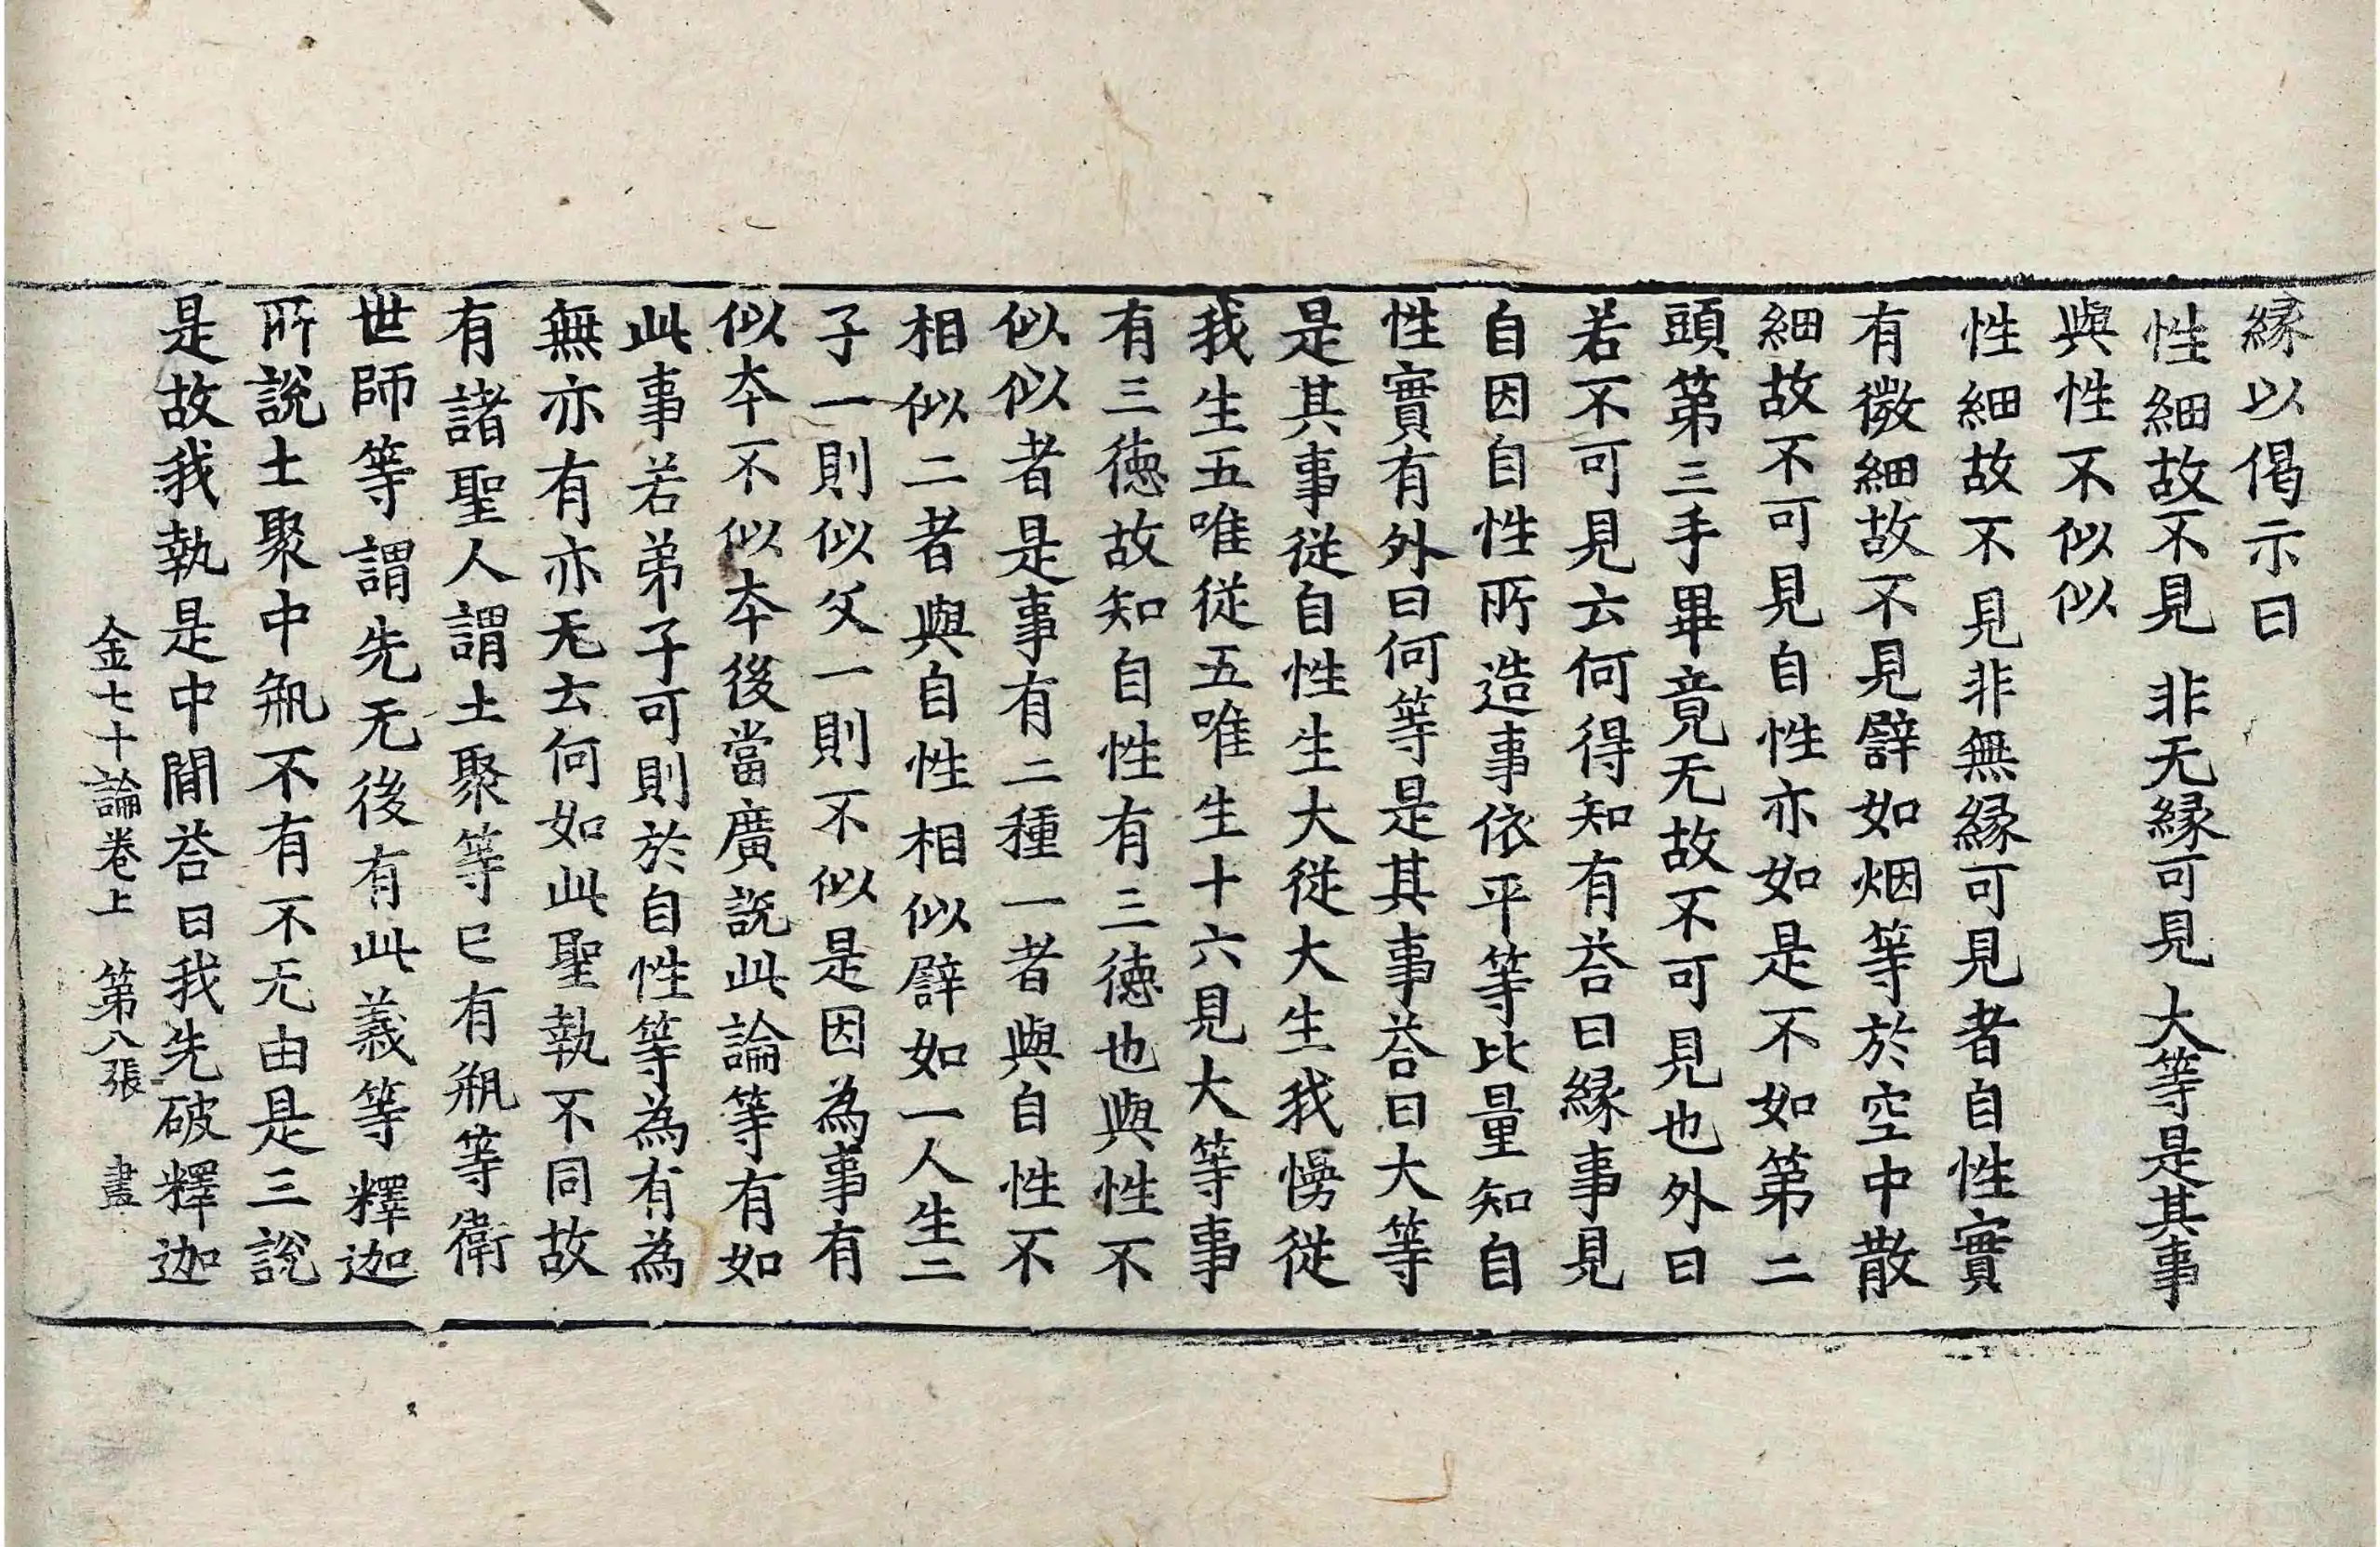 縁以偈示曰
性細故不見 非无縁可見 大等是其事
與性不似似
性細故不見非無縁可見者自性實
有微細故不見譬如烟等於空中散
細故不可見自性亦如是不如第二
頭第三手畢竟无故不可見也外曰
若不可見云何得知有荅曰縁事見
自因自性所造事依平等比量知自
性實有外曰何等是其事荅曰大等
是其事從自性生大從大生我慢從
我生五唯從五唯生十六見大等事
有三德故知自性有三德也與性不
似似者是事有二種一者與自性不
相似二者與自性相似譬如一人生二
子一則似父一則不似是因為事有
似夲不似夲後當廣說此論等有如
此事若弟子可則於自性等為有為
無亦有亦无云何如此聖執不同故
有諸聖人謂土聚等已有瓶等衛
世師等謂先无後有此義等釋迦
所說土聚中瓶不有不无由是三說
是故我執是中間荅曰我先破釋迦
金七十論卷上 第八張 晝